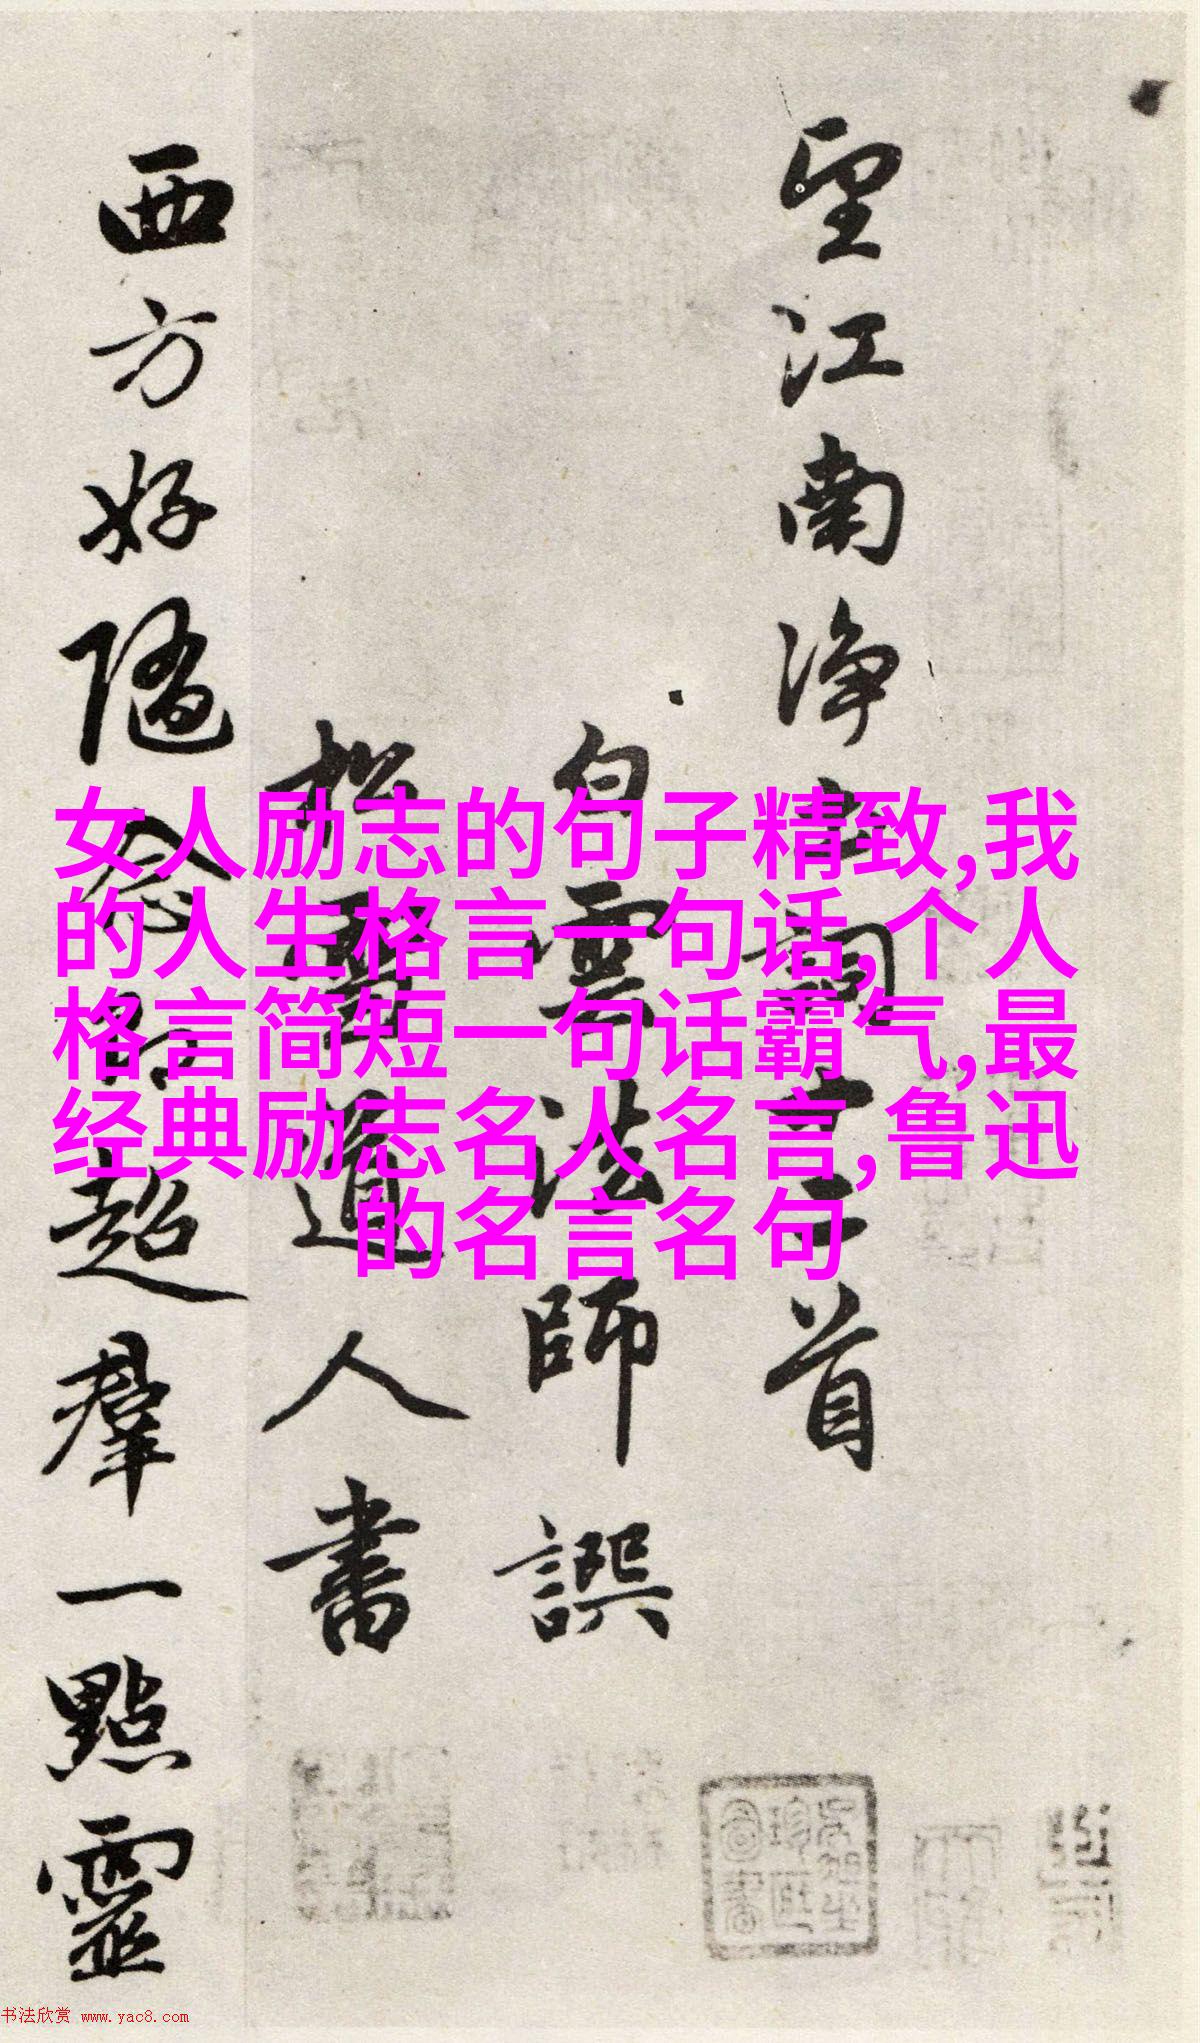 女人励志的句子精致,我
的人生格言一句话,个人
格言简短一句话霸气,最
经典励志名人名言,鲁迅
的名言名句
望江南净土詞十二首
白雲法師譔
松雪道人書
西方好隨念即超羣一點靈
书法欣赏 www.yac8.com